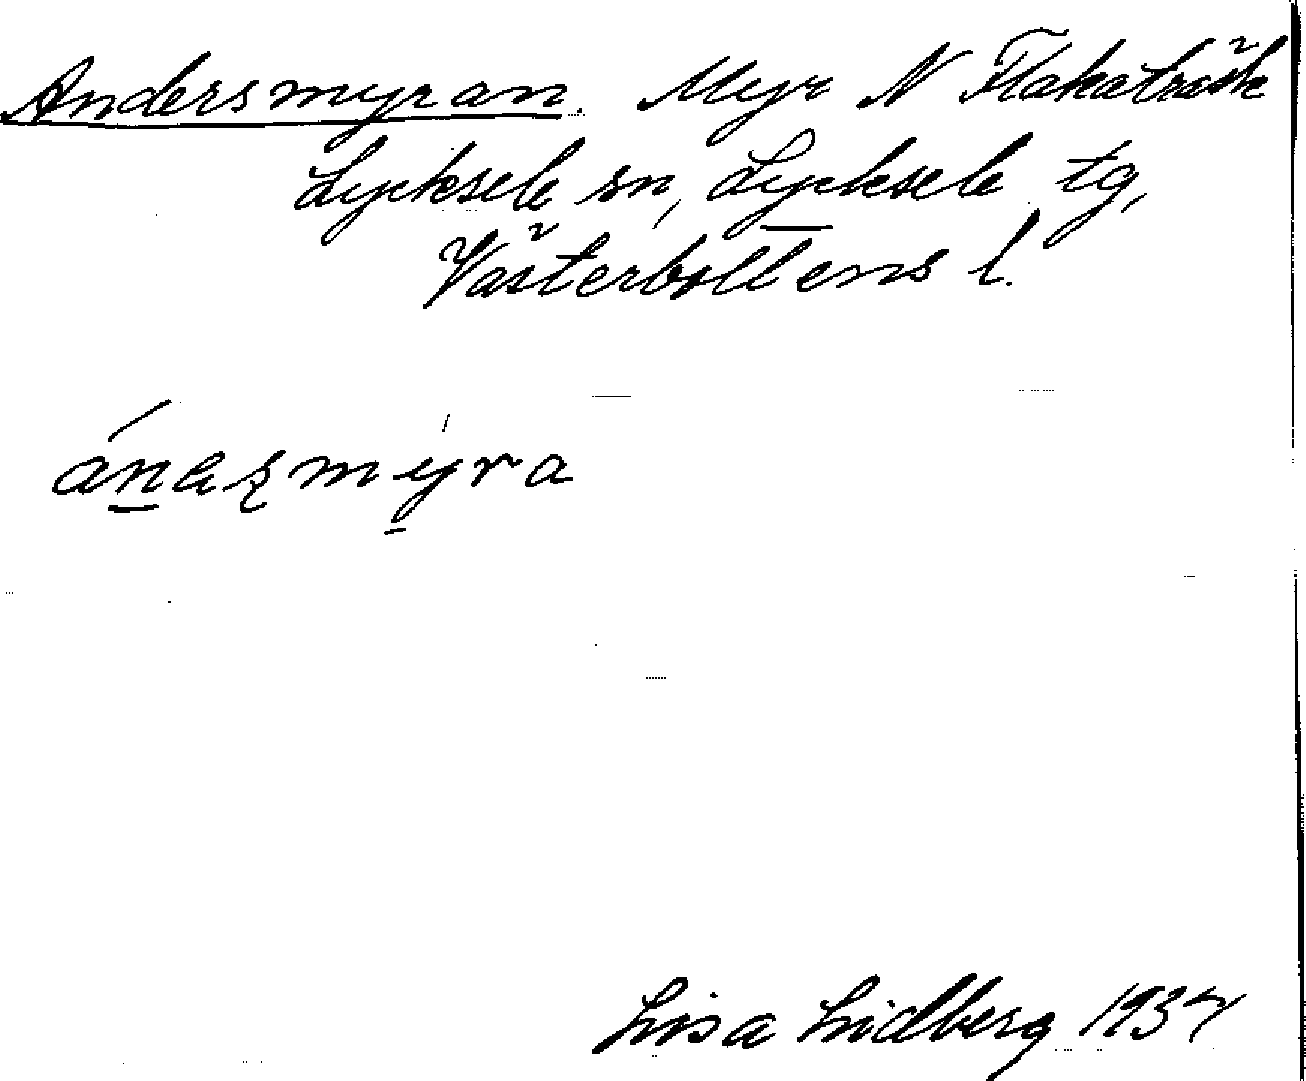 Andersmyran. Myr N Flakaträsk
Lycksele sn, Lycksele tg,
Västerbottens l.
ánaşmýra
Lisa Lidberg 1937